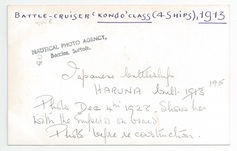 BATTLE-CRUISER 'KONGO' CLASS (4 SHIPS), 1913
NAUTICAL PHOTO AGENCY,
Beccles, Suffolk.
Japanese battleship
HARUNA built 1913
Photo Dec 4th 1928. Shows her
with the emperor on board
Photo before reconstruction.